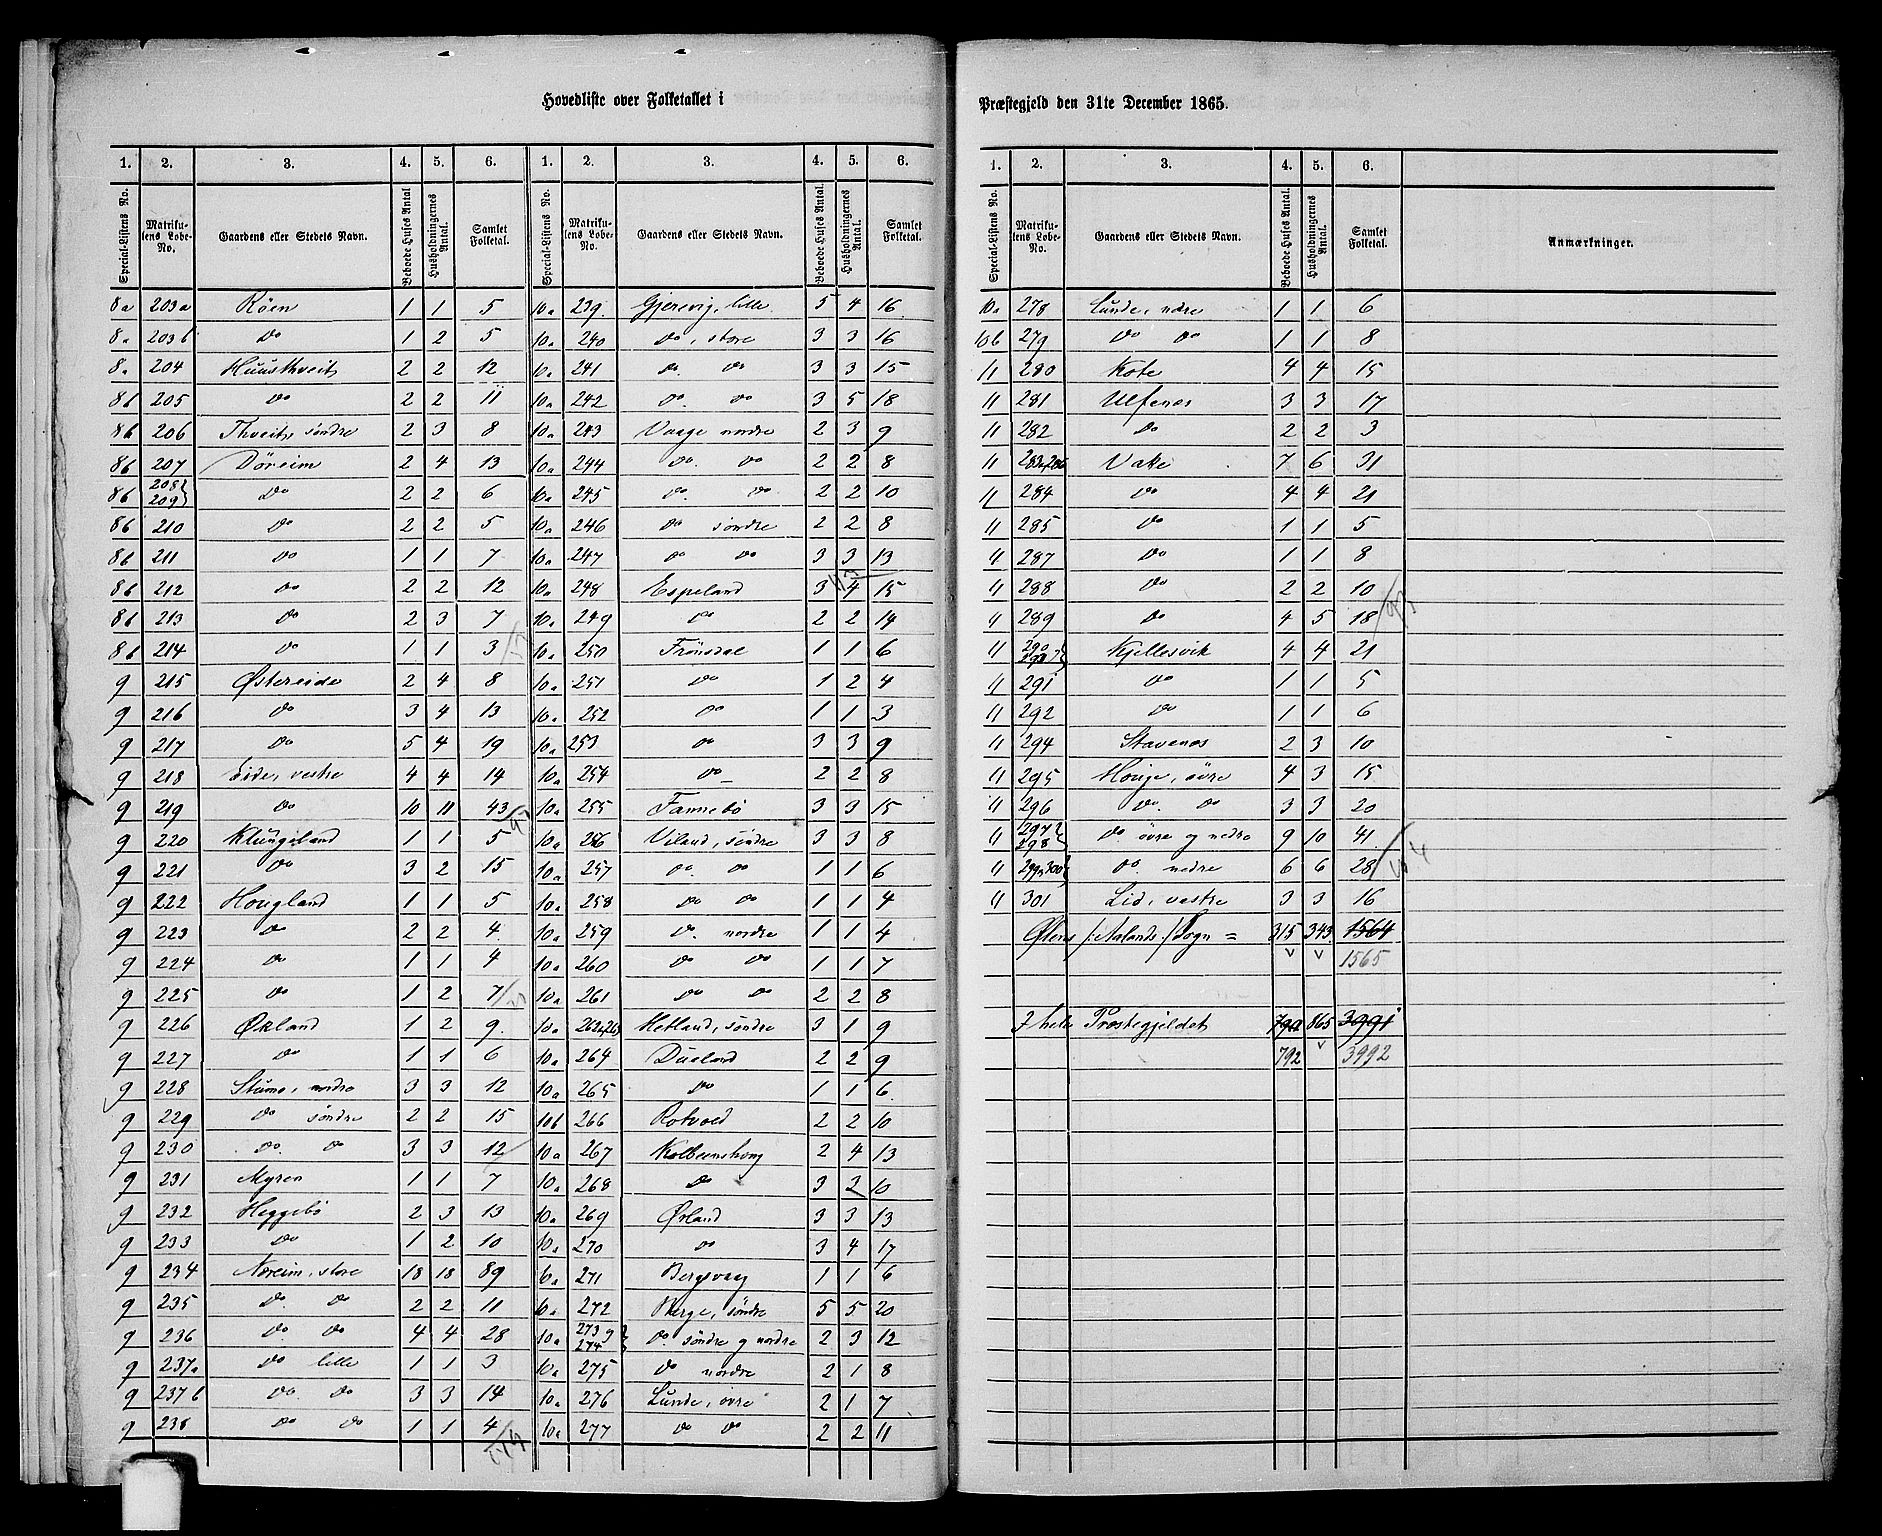 Hovedliste over Folketallet i
Præstegjeld den 31te December 1865.
1. 2. 3. 4. 5. 6. 1. 2. 3. 4. 5. 6.
Special-Listens No. Matrikulens Løbe-No. Gaardens eller Stedets Navn. Beboede Huses Antal Husholdningernes Antal. Samlet Folketal. Special-Listens No. Matrikulens Løbe-No. Gaardens eller Stedets Navn. Beboede Huses Antal. Husholdningernes Antal. Samlet Folketal.
8a 203a Röen 1 1 5 10a 239. Gjerevig, lille 5 4 16
8a 203b do 1 2 5 10a 240 do, store 3 3 16
8a 204 Huusthveit 2 2 12 10a 241 do. do 3 3 15
8b 205 do 2 2 11 10a 242 do. do 3 5 18
8b 206 Thveit, söndre 2 3 8 10a 243 Vaage nordre 2 3 9
8b 207 Döreim 2 4 13 10a 244 do. do 2 2 8
8b 208 209 do 2 2 6 10a 245 do. do 2 2 10
8b 210 do 2 2 5 10a 246 do söndre 2 2 8
8b 211 do 1 1 7 10a 247 do do 3 3 13
8b 212 do 2 2 12 10a 248 Espeland 3 4 15
8b 213 do 2 3 7 10a 249 do 2 2 14
8b 214 do 1 1 3 10a 250 Frönsdal 1 1 6
9 215 Östereide 2 4 8 10a 251 do 1 2 4
9 216 do 3 4 13 10a 252 do 1 1 3
9 217 do 5 4 19 10a 253 do 3 3 9
9 218 Eide, vestre 4 4 14 10a 254 do 2 2 8
9 219 do 10 11 43 10a 255 Fannebö 3 3 15
9 220 Klungeland 1 1 5 10a 256 Viland, söndre 3 3 8
9 221 do 3 2 15 10a 257 do. do 1 1 6
9 222 Hougland 1 1 5 10a 258 do do 1 1 4
9 223 do 2 2 4 10a 259 do. nordre 1 1 4
9 224 do 1 1 4 10a 260 do do 1 1 7
9 225 do 1 2 7 10a 261 do do 2 2 8
9 226 Økland 1 2 9. 10a 262, 263 Hetland, söndre 3 1 9
9 227 do 1 1 6 10a 264 Dueland 2 2 9
9 228 Stumo, nordre 3 3 12 10a 265 do 1 1 6.
9 229 do söndre 2 2 15 10b 266 Rotvold 2 2 10
9 230 do. do 3 3 12 10a 267 Kolbeinshaug 2 4 13
9 231 Myren 1 1 7 10a 268 do 3 2 10
9 232 Heggebö 2 3 13 10a 269 Ørland 3 3 13
9 233 do 1 2 10 10a 270 do 3 4 17
9 234 Nøreim, store 18 18 89 10a 271 Bergsvaag 1 1 6
9 235 do. do 2 2 11 10a 272 Berge, söndre 5 5 20
9 236 do. do 4 4 28 10a 273 274 do. söndre og nordre 2 3 12
9 237a do lille 1 1 3 10a 275 do nordre 2 1 8
9 237b do do 3 3 14 10a 276 Lunde, övre 2 1 7
9 238 do do 1 1 4 10a 277 do do 2 2 11
1. 2. 3. 4. 5. 6.
Special-Listens No. Matrikulens Løbe-No. Gaardens eller Stedets Navn. Beboede Huses Antal. Husholdningernes Antal. Samlet Folketal. Anmærkninger.
10a 278 Lunde, nedre 1 1 6
10b 279 do do 1 1 8
11 280 Kote 4 4 15
11 281 Ulfenes 3 3 17
11 282 do 2 2 3
11 283, 286 Vake 7 6 31
11 284 do 4 4 21
11 285 do 1 1 5
11 287 do 1 1 8
11 288 do 2 2 10
11 289 do 4 5 18
11 290 293 Kjellesvik 4 4 21
11 291 do 1 1 5
11 292 do 1 1 6
11 294 Stavenes 2 3 10
11 295 Houge, övre 4 3 15
11 296 do. do 3 3 20
11 297 298 do övre og nedre 9 10 41
11 299, 300 do. nedre 6 6 28
11 301 Lid, vestre 3 3 16
Ølens /:Aalands:/ Sogn = 315 343 1564
v v 1565
I hele Præstegjeldet 790 865 3991
792 v 3992